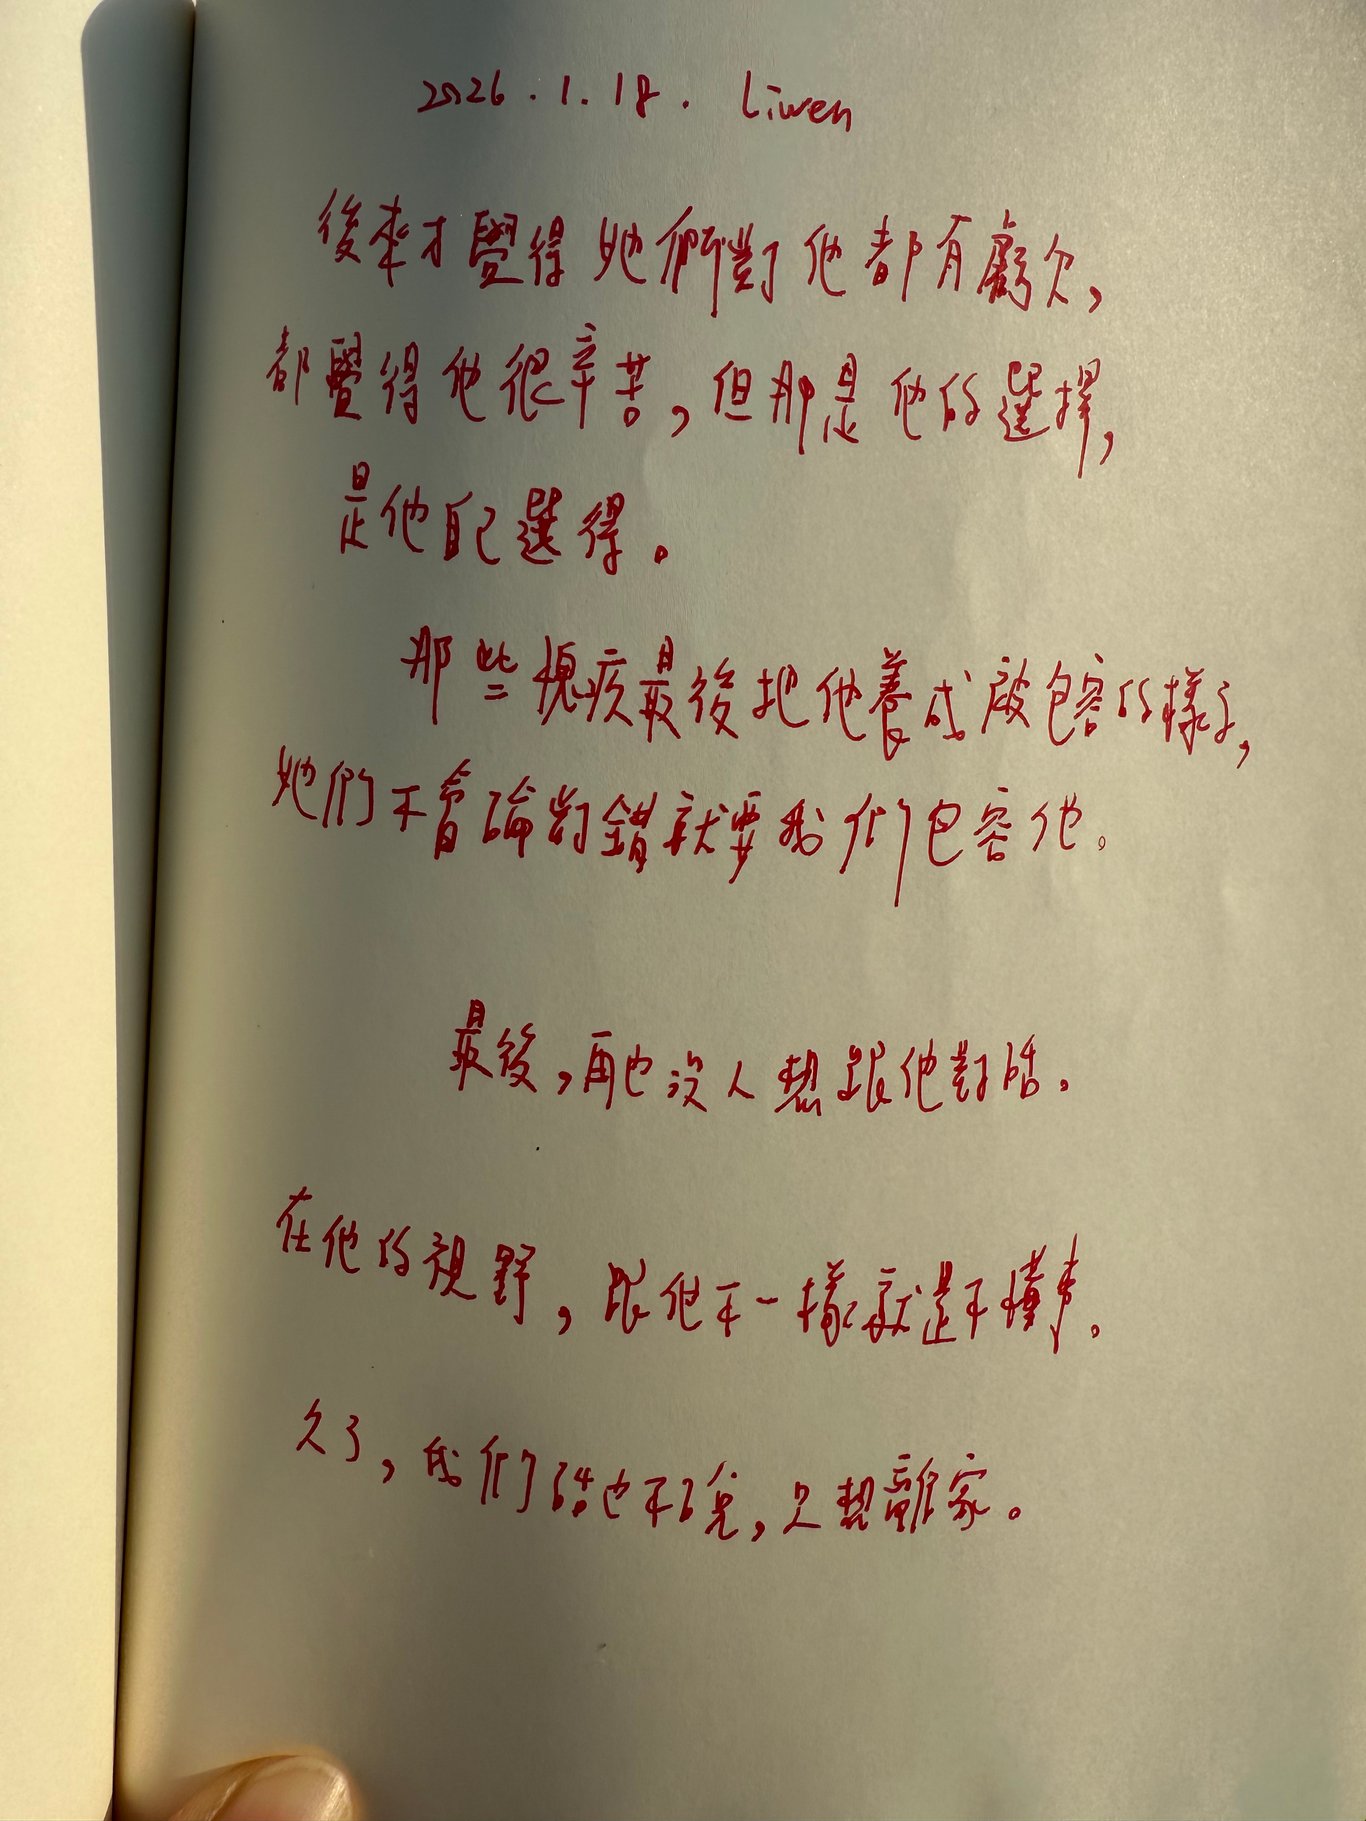 2026.1.18. Liwen
後來才覺得她們對他都有虧欠,
都覺得他很辛苦,但那是他的選擇,
是他自己選得。
那些愧疚最後把他養成被包容的樣子,
她們不會論對錯就要我們包容他。
最後,再也沒人想跟他對話。
在他的視野,跟他不一樣就是不懂事。
久了,我們話也不說,只想離家。